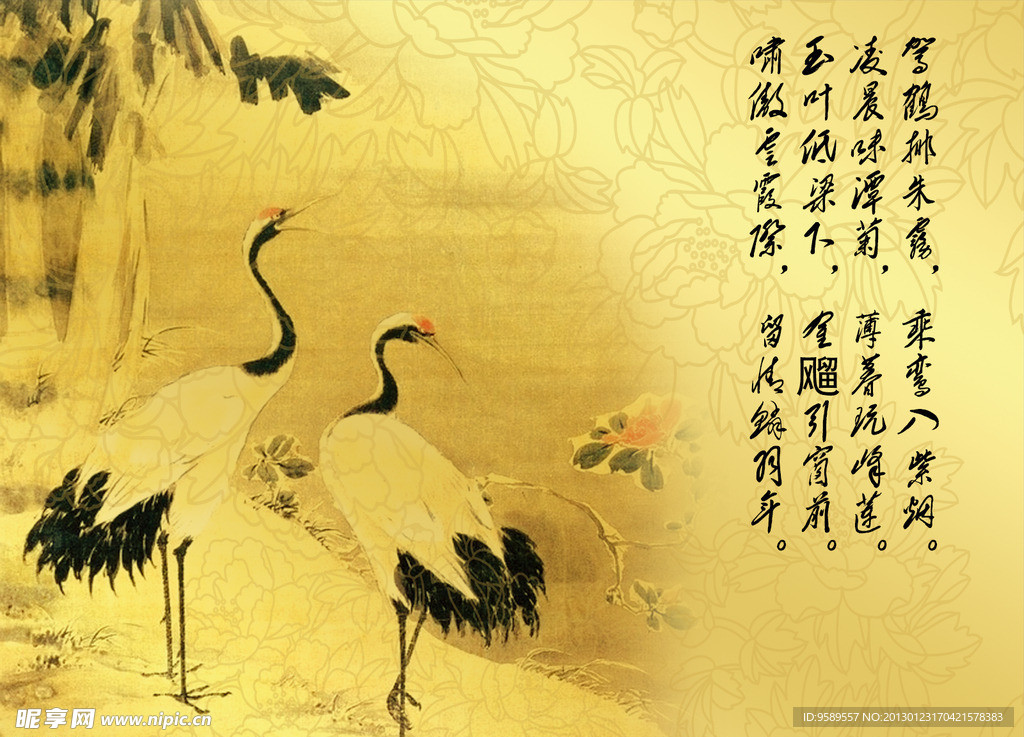 驾鹤排朱雾，乘鸾入紫烟。
凌晨味潭菊，薄暮玩峰莲。
玉叶低梁下，金飀引窗前。
啸傲云霞际，留情鳞羽年。
昵享网 www.nipic.cn
ID:9589557 NO:20130123170421578383